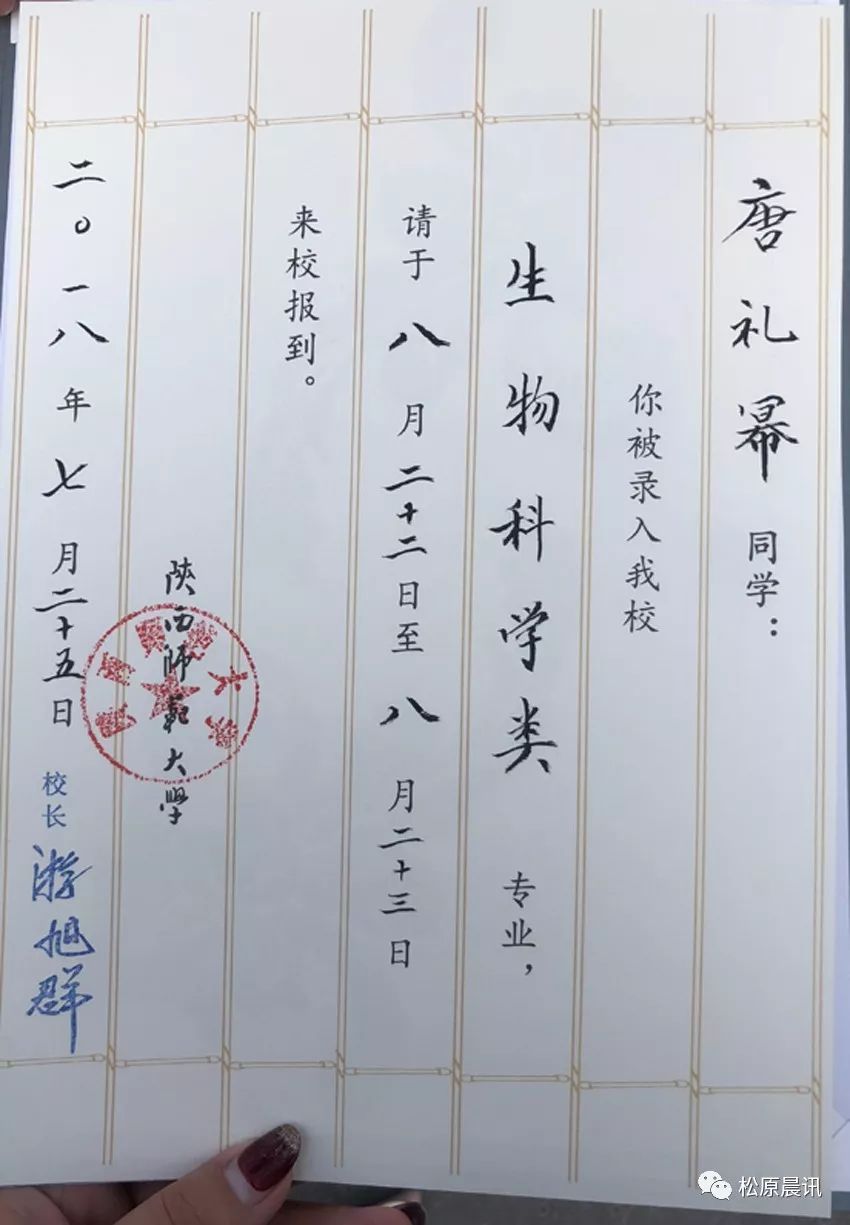 唐礼幂同学：
你被录入我校
生物科学类专业，
请于八月二十二日至八月二十三日
来校报到。
陝西师範大學
二〇一八年七月二十五日
校长 游旭群
松原晨讯